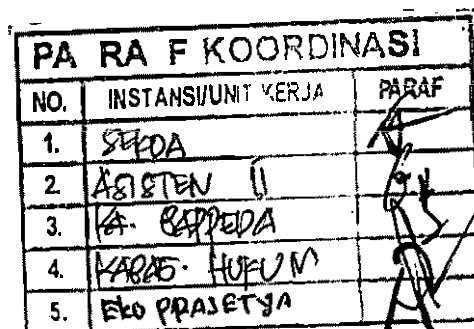 PA RA F KOORDINASI
NO. INSTANSI/UNIT KERJA PARAF
1. SEKDA
2. ASISTEN II
3. KA. BAPPEDA
4. KABAG. HUKUM
5. EKO PRASETYA